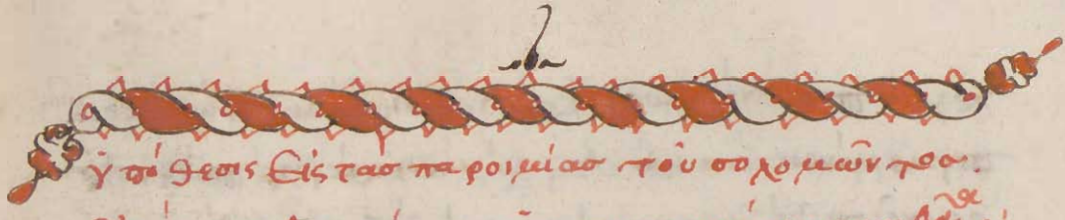 ὑπόθεσις εἰς τὰς παροιμίας τοῦ σολομῶντος